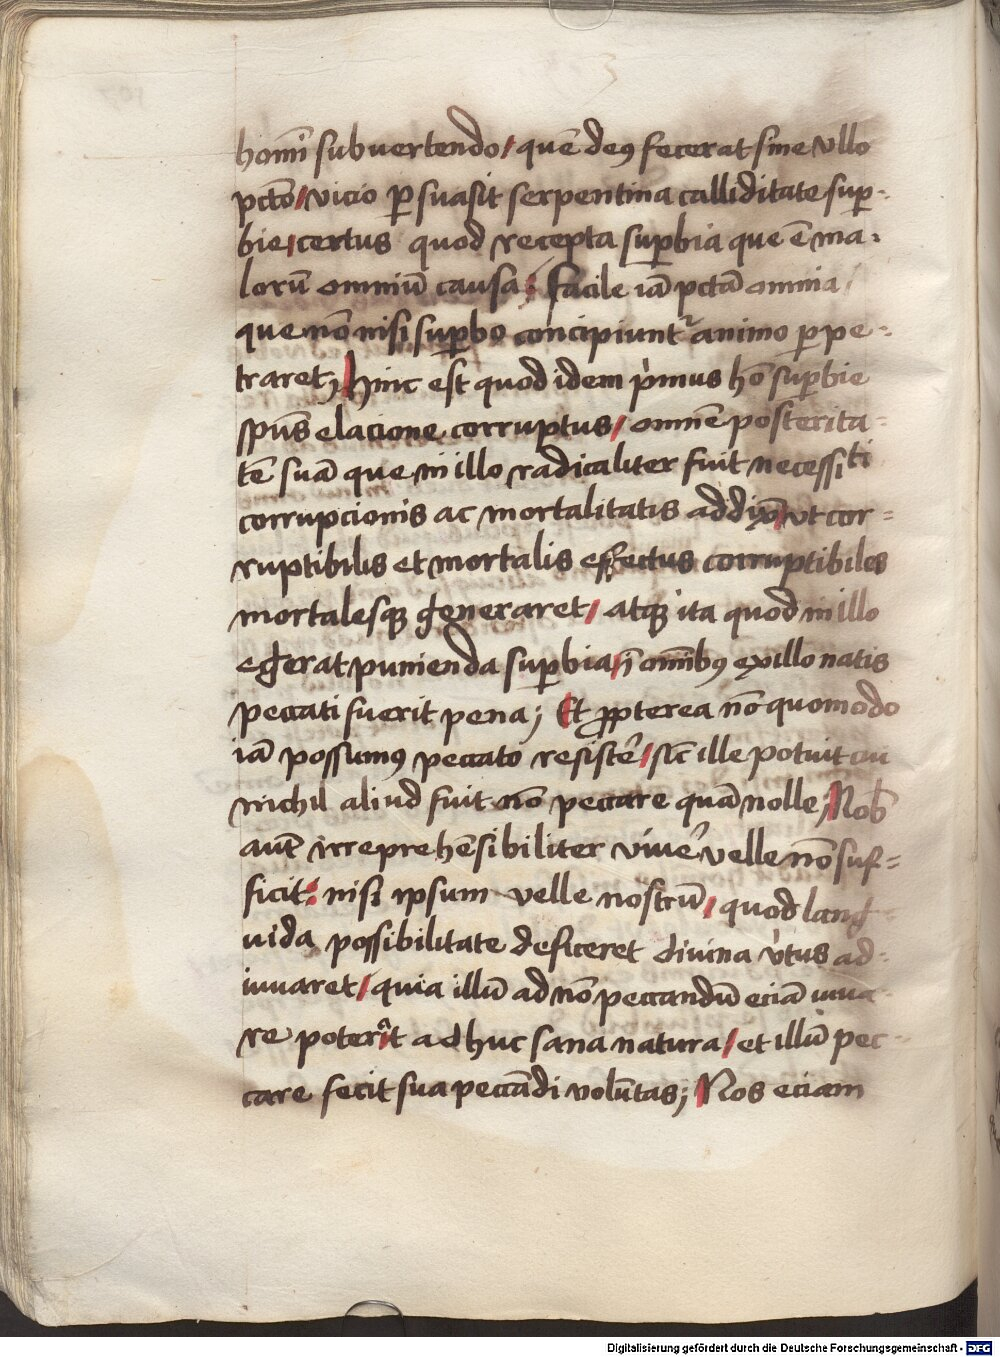 homī subuertendo / quē deꝰ fecerat sine vllo
pctō / vicio ꝑsuasit serpentina calliditate suꝑ-
bie / certus quod recepta suꝑbia que ē ma-
lorū omniū causa ; facile iā pctā omnia /
que nō nisi suꝑbo concipiuntᷣ animo ꝑpe-
traret ; Hinc est quod idem pͥmus hō suꝑbie
spūs elacione corruptus / omnē posterita-
tē suā que in illo radicaliter fuit necessiti
corrupcionis ac mortalitatis addixͭ / vt cor-
ruptibilis et mortalis effectus corruptibiles
mortalesqꝫ generaret / atqꝫ ita quod in illo
egerat punienda suꝑbia / ī omībꝰ ex illo natis
peccati fuerit pena ; Et ꝓpterea nō quomodo
iā possumꝰ peccato resistē / sic̄ ille potuit cui
nichil aliud fuit nō peccare quā nolle ; Nob̄
aut̄ irreprehēsibiliter viuē velle nō suf-
ficit : nisi ipsum velle nostrū / quod lang-
uida possibilitate deficeret diuina vͥtus ad-
iuuaret / quia illū ad nō peccandū eciā iuua-
re poterᵃt adhuc sana natura / et illū pec-
care fecit sua peccādi volūtas ; Nos eciam
Digitalisierung gefördert durch die Deutsche Forschungsgemeinschaft - DFG